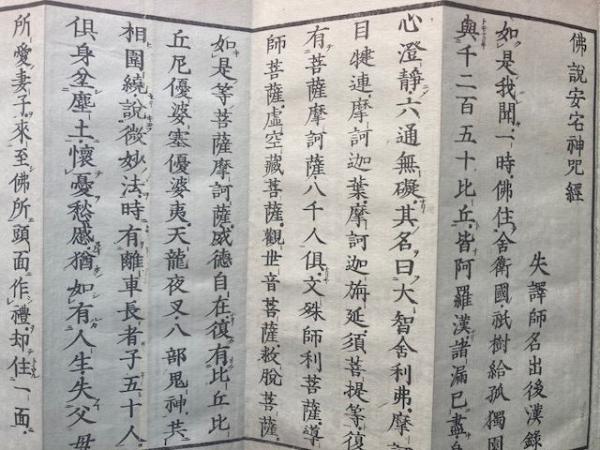 佛說安宅神咒經
失譯師名出後漢錄
如是我聞一時佛住舍衛國祇樹給孤獨園
與千二百五十比丘皆阿羅漢諸漏已盡身
心澄靜六通無礙其名曰大智舍利弗摩訶
目犍連摩訶迦葉摩訶迦旃延須菩提等復
有菩薩摩訶薩八千人俱文殊師利菩薩導
師菩薩虛空藏菩薩觀世音菩薩救脫菩薩
如是等菩薩摩訶薩威德自在復有比丘比
丘尼優婆塞優婆夷天龍夜叉八部鬼神共
相圍繞說微妙法時有離車長者子五十人
俱身坌塵土懷憂愁慼猶如有人生失父母
所愛妻子來至佛所頭面作禮却住一面